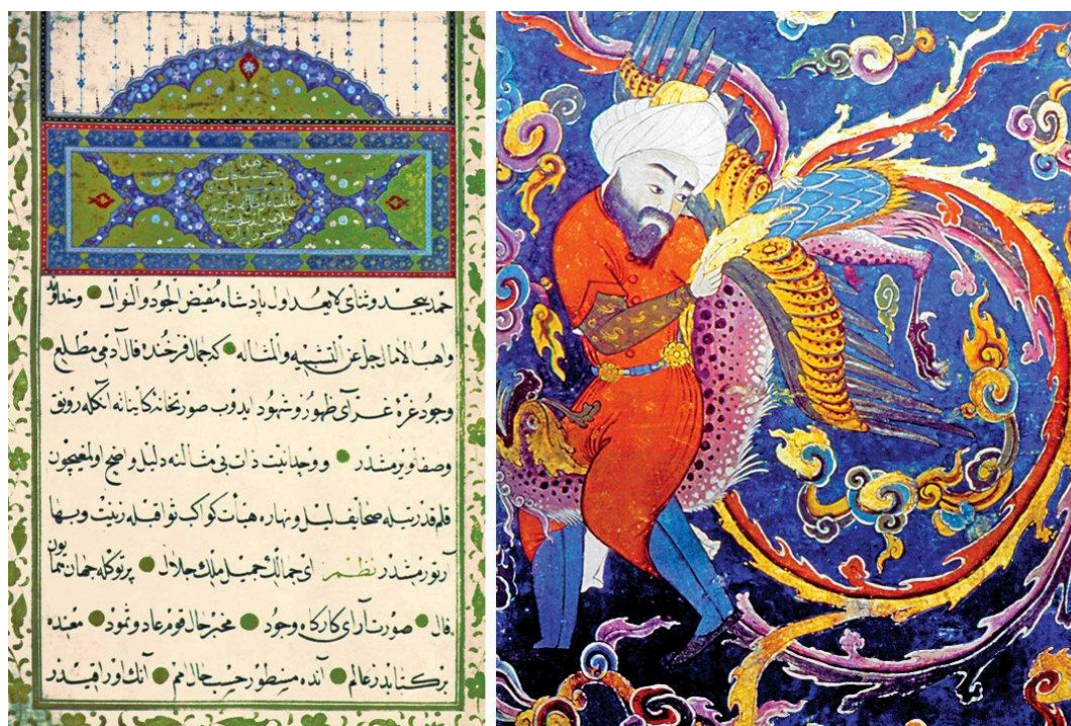 حمد بیحد و ثنای لا یعد اول پادشاه مفیض الجود والنواله وخداوند
واهب الامال جل عن التشبیه والمثاله که جمال فرخنده فال آدمی مطلع
وجود غرهٔ غرای ظهور و شهود ایدوب صورتخانهٔ کایناته آنکله رونق
وصفا ویرمشدر ووحدانیت ذات بی مثالنه دلیل واضح اولمغیچون
قلم قدرتیله صحایف لیل ونهاره هیات کواکب ثواقبله زینت وبها
آرتورمشدر نظم ای جمالك جمیل ملك جلال پرتوکله جهان همایون
فال صورت آرای کارکاه وجود مخبر حال قوم عاد وثمود معنده
بر کتابدر عالم آنده مسطور حسب حال امم آنك اوراقیدر